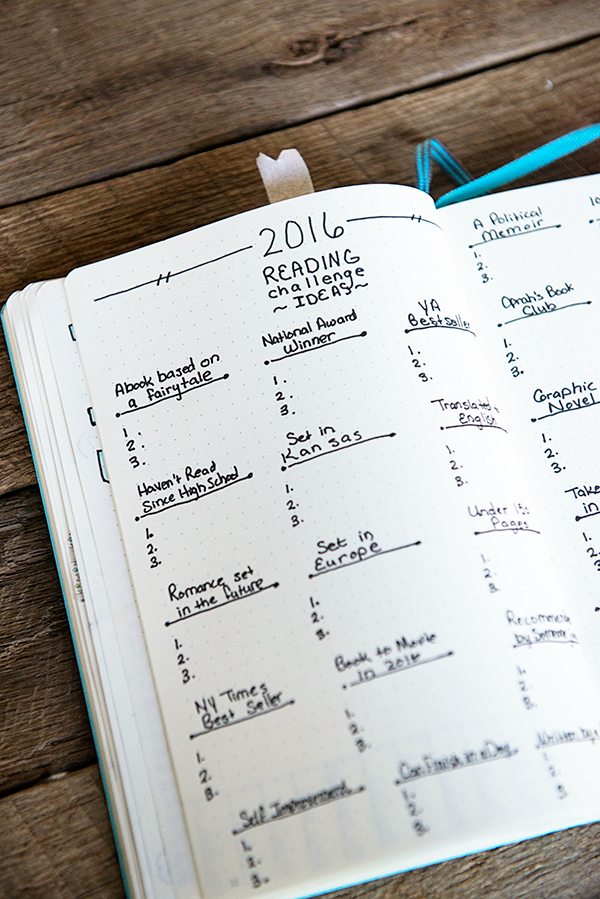 2016
READING
challenge
~ IDEAS ~
A book based on
a fairytale
1.
2.
3.
Haven't Read
Since High School
1.
2.
3.
Romance set
in the future
1.
2.
3.
NY Times
Best Seller
1.
2.
3.
Self Improvement
1.
2.
3.
National Award
Winner
1.
2.
3.
Set in
Kansas
1.
2.
3.
Set in
Europe
1.
2.
3.
Book to Movie
in 2016
1.
2.
3.
Can Finish in a Day
1.
2.
3.
YA
Bestseller
1.
2.
3.
Translated to
English
1.
2.
3.
Under 150
Pages
1.
2.
3.
by
1.
2.
3.
Written by a
1.
2.
3.
A Political
Memoir
1.
2.
3.
Oprah's Book
Club
1.
2.
3.
Graphic
Novel
1.
2.
3.
Take
in
1.
2.
3.